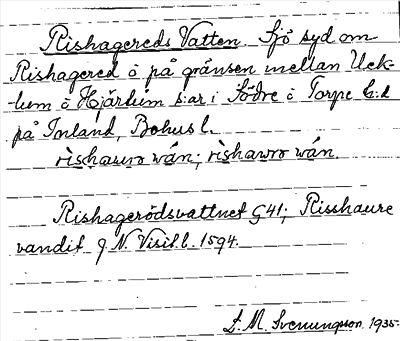 Rishagereds Vatten. Sjö syd om
Rishagered o på gränsen mellan Uck-
lum o Hjärtum s:ar i Södre o Torpe h:d
på Inland, Bohusl.
rishawro wån; rishawro wån.
Rishagerödsvattnet G41; Risshaure
vandit J N. Visit.l. 1594.
L. M. Svenungsson. 1935.